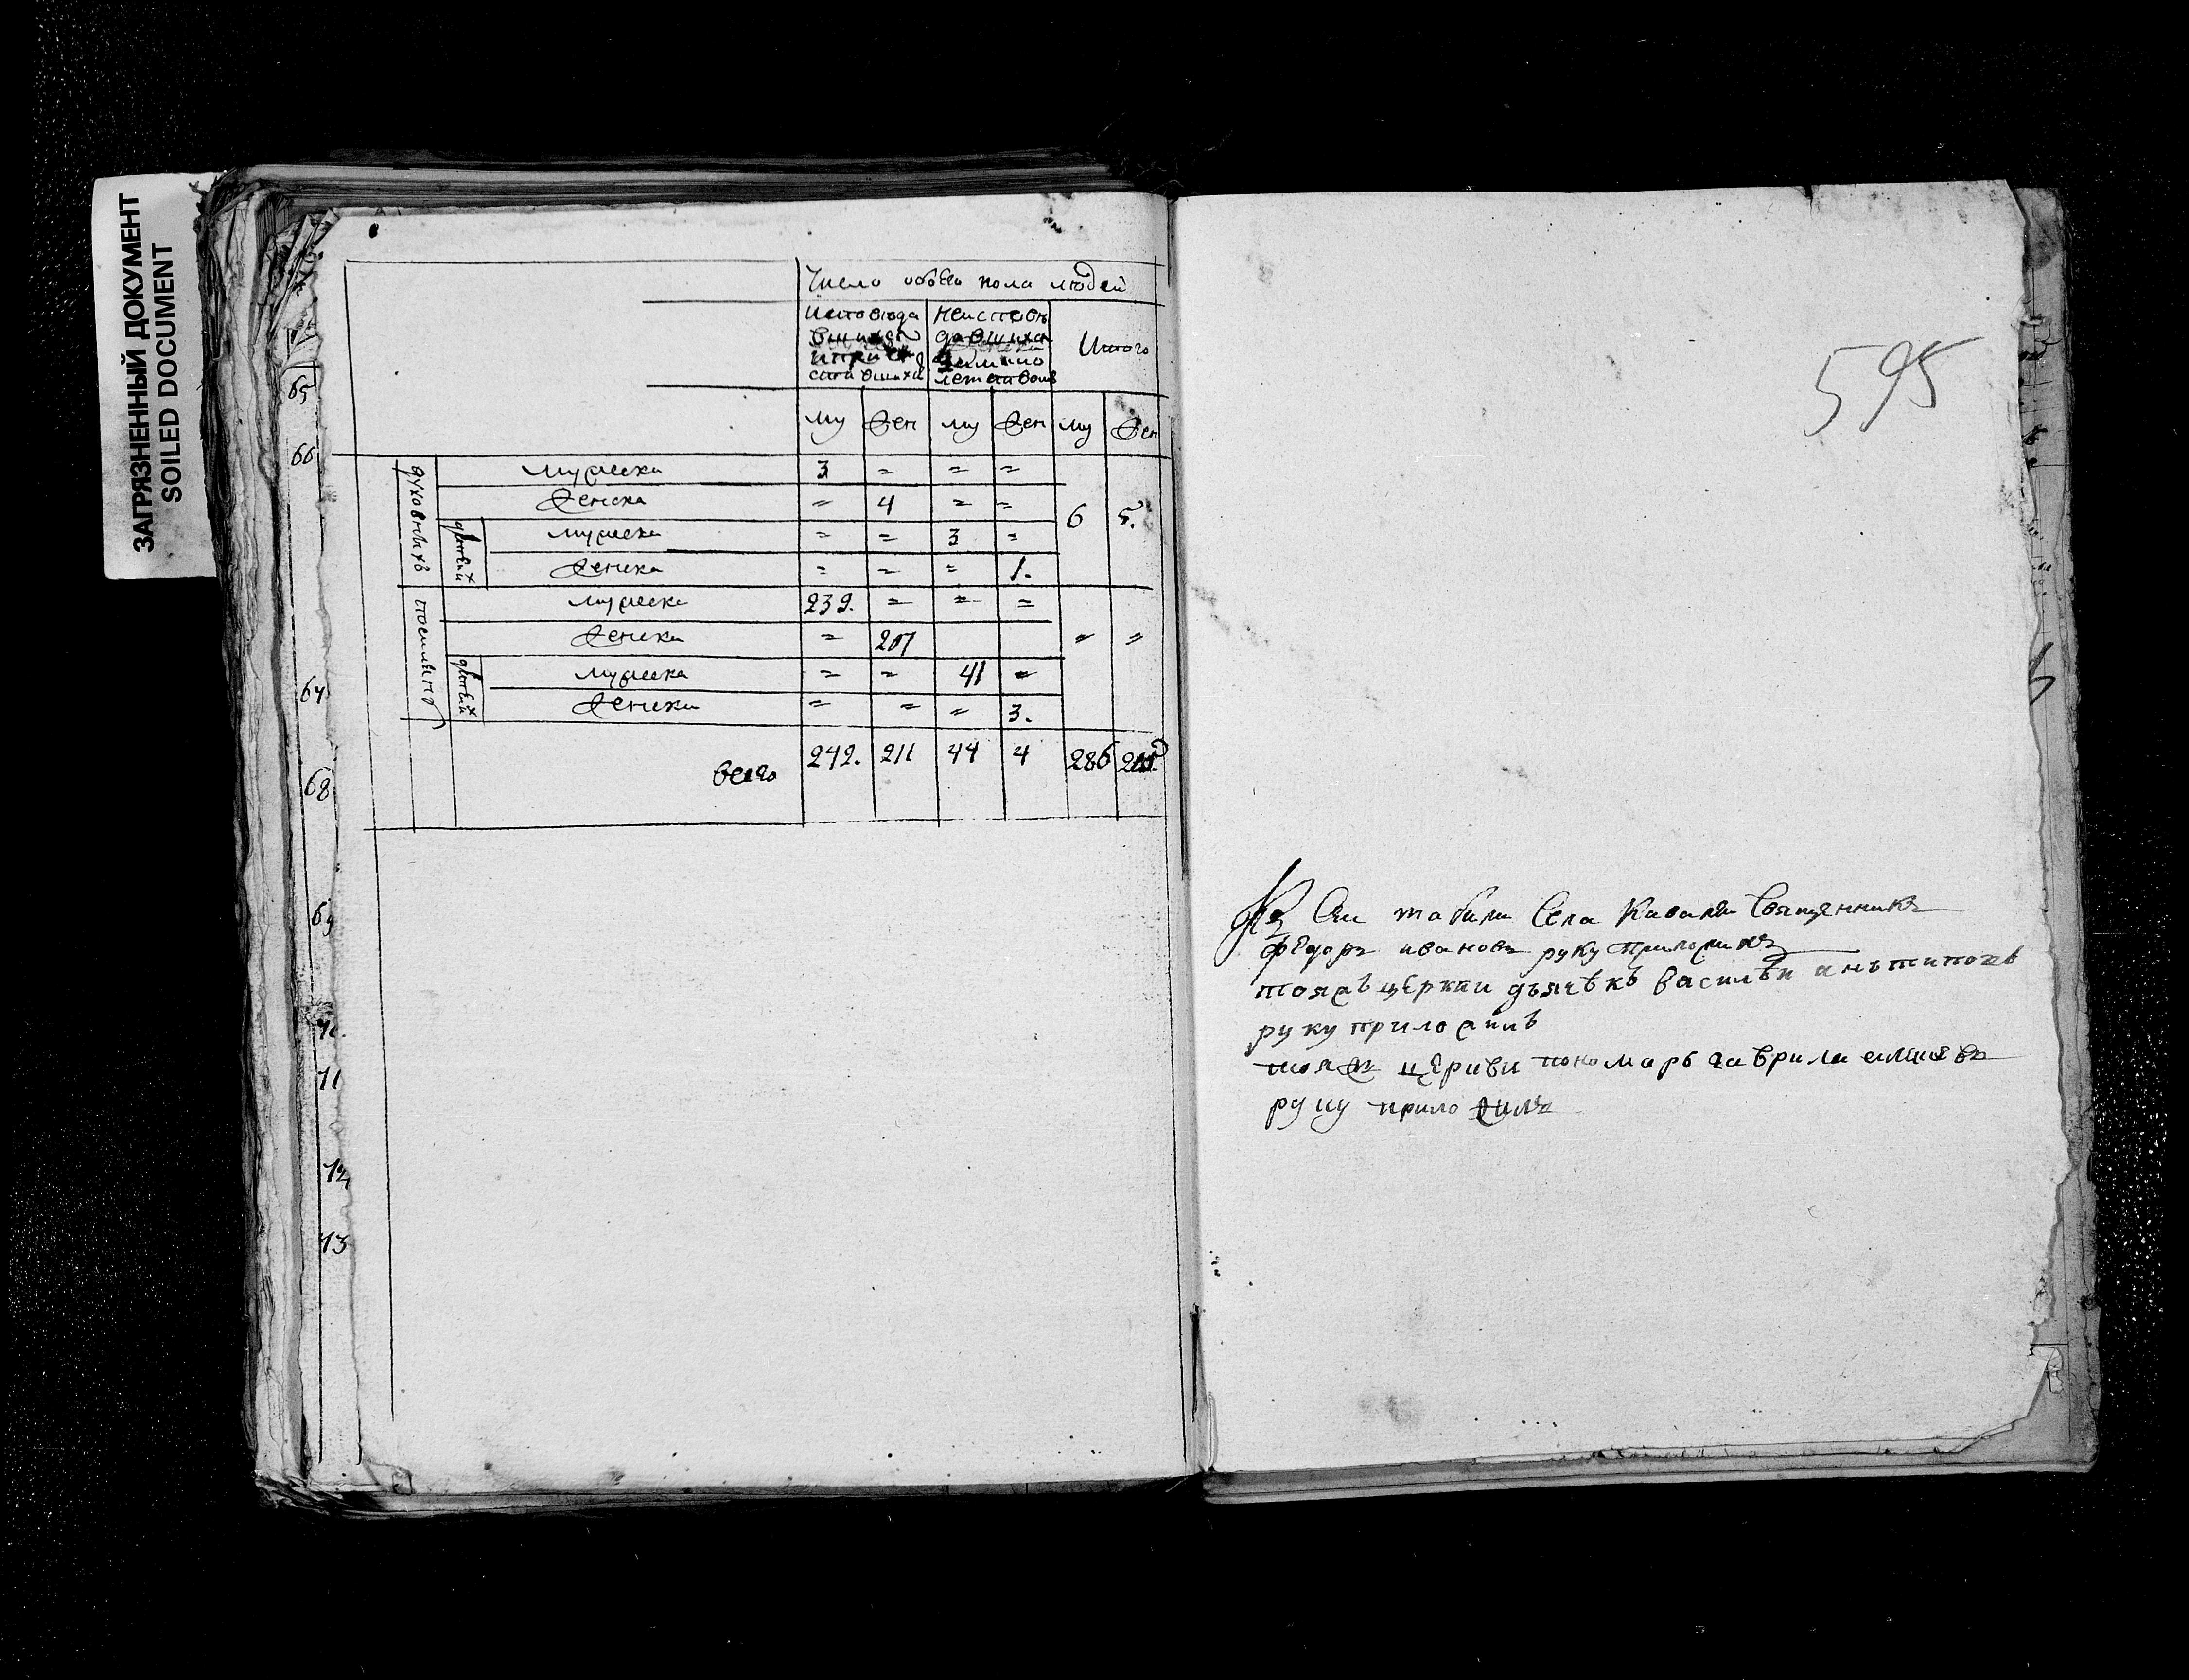 ЗАГРЯЗНЕННЫЙ ДОКУМЕНТ
SOILED DOCUMENT
65
66
67
68
69
70.
71
72
73
Число обоего пола людей
исповеда вшихся и прича стившихся
неисповѣ давшихся за мало летствомъ
Итого
му жен му жен му жен
духовныхъ
мужеска 3 = = =
женска = 4 = =
6 5.
детей ихъ
мужеска = = 3 =
женска = = = 1.
поселянъ
мужеска 239. = = =
женска = 207
= =
детей ихъ
мужеска = = 41 =
женска = = = 3.
всего 242. 211 44 4 286
595
Къ сей табели Села Кавалеи Священникъ
Федоръ ивановъ руку приложилъ
тояжъ церкви дьячѣкъ василѣи анътиповъ
руку приложилъ
тояжъ церкви пономарь гаврила
руку приложилъ